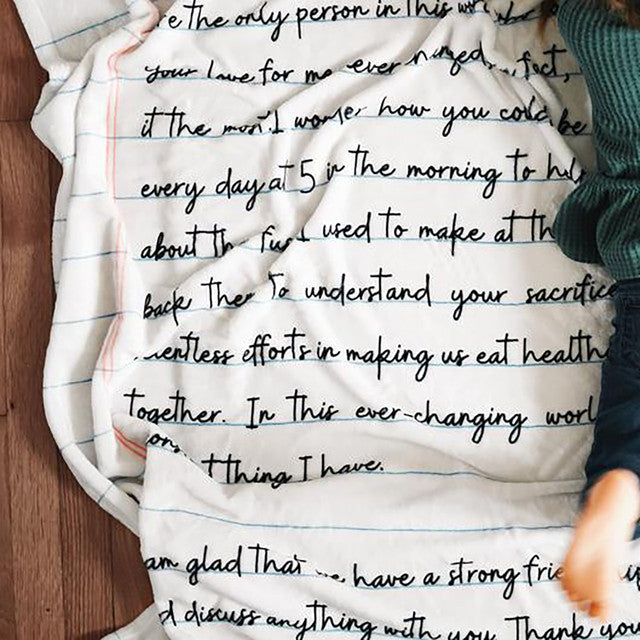 the only person in this
your love for me ever
it the most. I how you could be
every day at 5 in the morning to
about the used to make at
back then to understand your sacrifice
efforts in making us eat
together. In this ever-changing
thing I have.
am glad that have a strong
discuss anything with you. Thank you